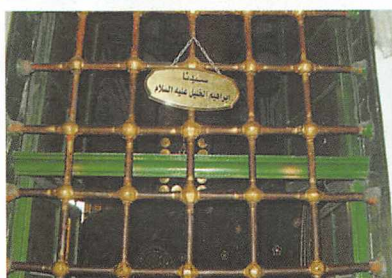 سيدنا
ابراهيم الخليل عليه السلام